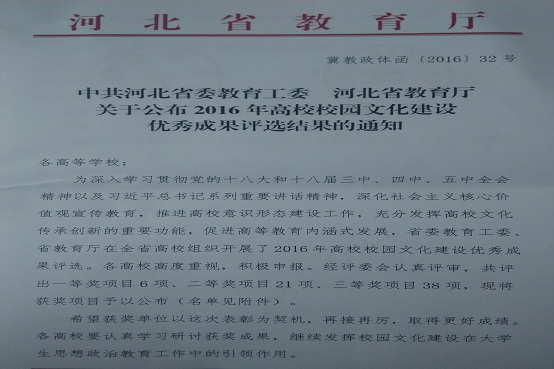 河北省教育厅
冀教政体函〔2016〕32号
中共河北省委教育工委 河北省教育厅
关于公布2016年高校校园文化建设
优秀成果评选结果的通知
各高等学校：
为深入学习贯彻党的十八大和十八届三中、四中、五中全会
精神以及习近平总书记系列重要讲话精神，深化社会主义核心价
值观宣传教育，推进高校意识形态建设工作，充分发挥高校文化
传承创新的重要功能，促进高等教育内涵式发展，省委教育工委、
省教育厅在全省高校组织开展了2016年高校校园文化建设优秀成
果评选。各高校高度重视，积极申报。经评委会认真评审，共评
出一等奖项目6项、二等奖项目21项、三等奖项目38项，现将
获奖项目予以公布（名单见附件）。
希望获奖单位以这次表彰为契机，再接再厉，取得更好成绩。
各高校要认真学习研讨获奖成果，继续发挥校园文化建设在大学
生思想政治教育工作中的引领作用。